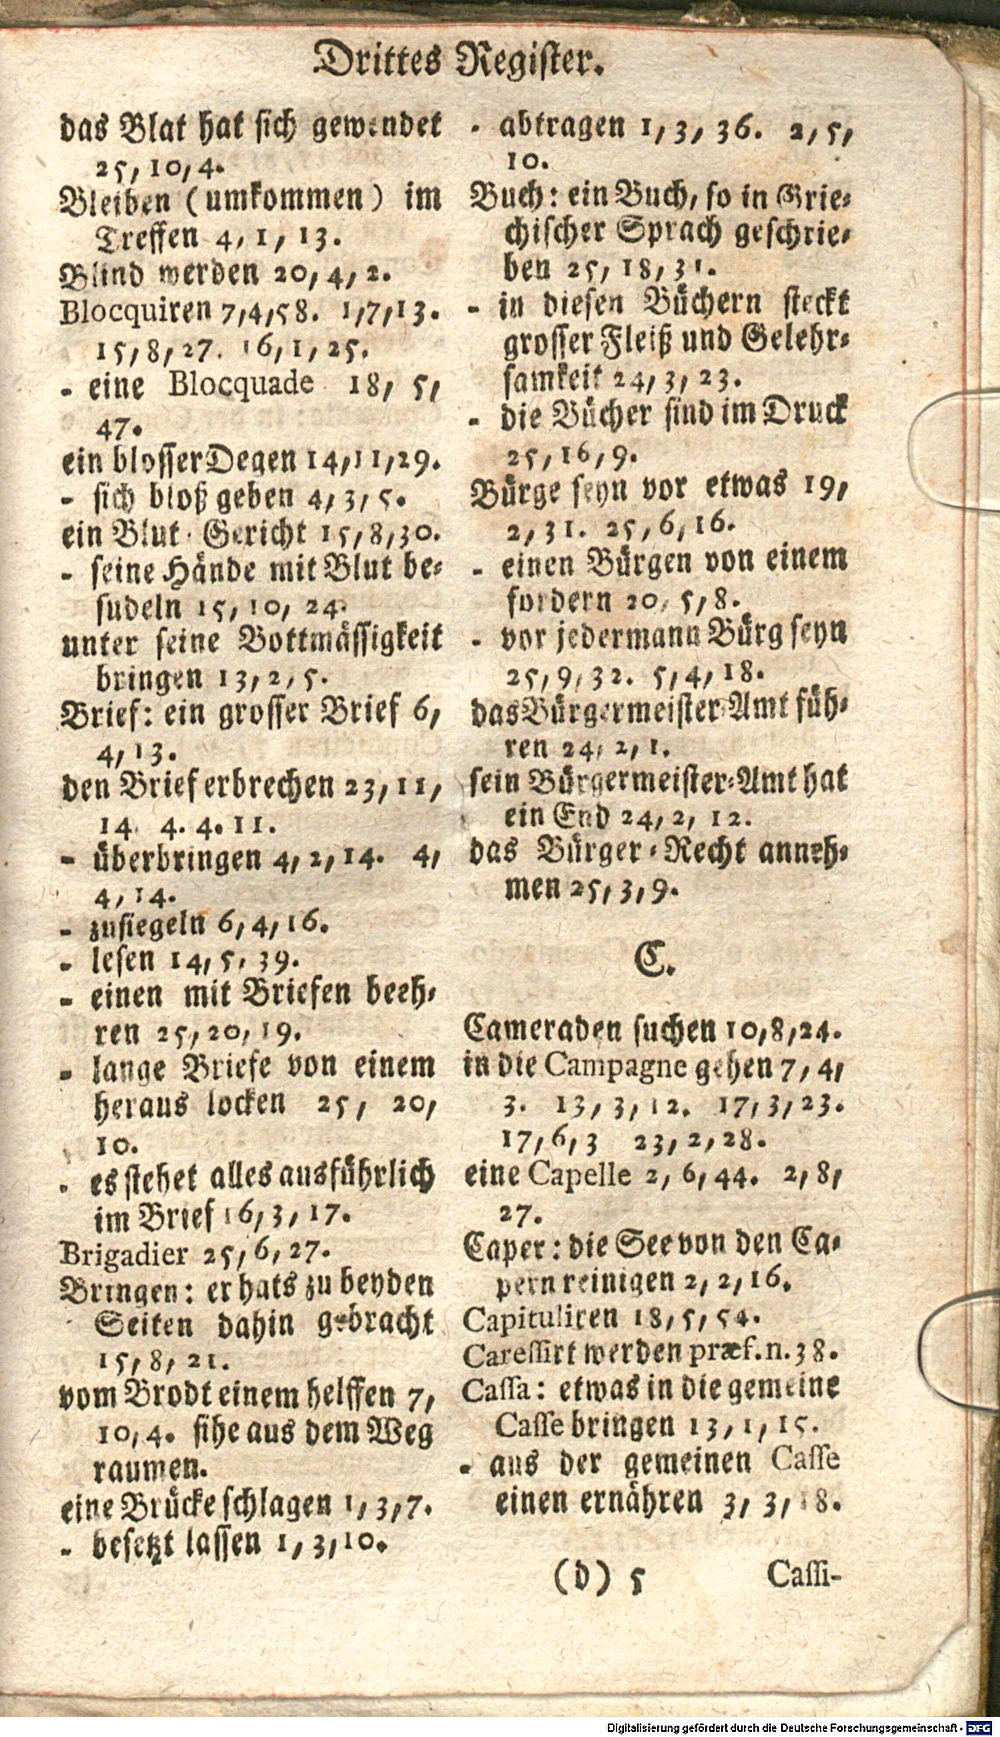 Drittes Register.
das Blat hat sich gewendet
25, 10, 4.
Bleiben (umkommen) im
Treffen 4, 1, 13.
Blind werden 20, 4, 2.
Blocquiren 7, 4, 58. 1, 7, 13.
15, 8, 27. 16, 1, 25.
- eine Blocquade 18, 5,
47.
ein blosser Degen 14, 11, 29.
- sich bloß geben 4, 3, 5.
ein Blut-Gericht 15, 8, 30.
- seine Hände mit Blut be-
sudeln 15, 10, 24.
unter seine Bottmässigkeit
bringen 13, 2, 5.
Brief: ein grosser Brief 6,
4, 13.
den Brief erbrechen 23, 11,
14. 4. 4. 11.
- überbringen 4, 2, 14. 4,
4, 14.
- zusiegeln 6, 4, 16.
- lesen 14, 5, 39.
- einen mit Briefen beeh-
ren 25, 20, 19.
- lange Briefe von einem
heraus locken 25, 20,
10.
- es stehet alles ausführlich
im Brief 16, 3, 17.
Brigadier 25, 6, 27.
Bringen: er hats zu beyden
Seiten dahin gebracht
15, 8, 21.
vom Brodt einem helffen 7,
10, 4. sihe aus dem Weg
raumen.
eine Brücke schlagen 1, 3, 7.
- besetzt lassen 1, 3, 10.
- abtragen 1, 3, 36. 2, 5,
10.
Buch: ein Buch, so in Grie-
chischer Sprach geschrie-
ben 25, 18, 31.
- in diesen Büchern steckt
grosser Fleiß und Gelehr-
samkeit 24, 3, 23.
- die Bücher sind im Druck
25, 16, 9.
Bürge seyn vor etwas 19,
2, 31. 25, 6, 16.
- einen Bürgen von einem
fordern 20, 5, 8.
- vor jedermann Bürg seyn
25, 9, 32. 5, 4, 18.
das Bürgermeister-Amt füh-
ren 24, 2, 1.
sein Bürgermeister-Amt hat
ein End 24, 2, 12.
das Bürger-Recht anneh-
men 25, 3, 9.
C.
Cameraden suchen 10, 8, 24.
in die Campagne gehen 7, 4,
3. 13, 3, 12. 17, 3, 23.
17, 6, 3 23, 2, 28.
eine Capelle 2, 6, 44. 2, 8,
27.
Caper: die See von den Ca-
pern reinigen 2, 2, 16.
Capituliren 18, 5, 54.
Caressirt werden præf. n. 38.
Cassa: etwas in die gemeine
Casse bringen 13, 1, 15.
- aus der gemeinen Casse
einen ernähren 3, 3, 18.
(d) 5 Cassi-
Digitalisierung gefördert durch die Deutsche Forschungsgemeinschaft - DFG